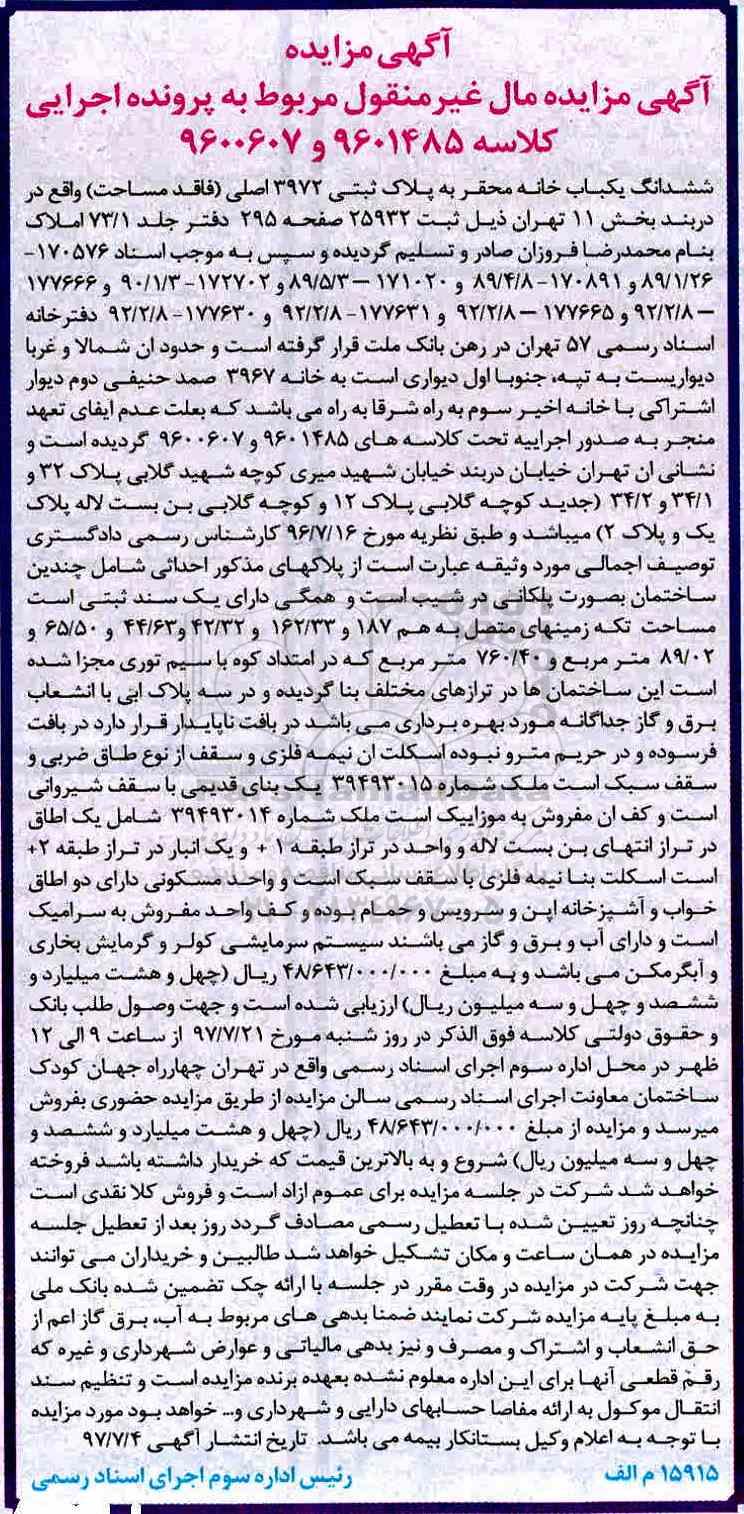 آگهی مزایده
آگهی مزایده مال غیرمنقول مربوط به پرونده اجرایی
کلاسه ۹۶۰۱۴۸۵ و ۹۶۰۰۶۰۷
ششدانگ یکباب خانه محقر به پلاک ثبتی ۳۹۷۲ اصلی (فاقد مساحت) واقع در
دربند بخش ۱۱ تهران ذیل ثبت ۲۵۹۳۲ صفحه ۲۹۵ دفتر جلد ۷۳/۱ املاک
بنام محمدرضا فروزان صادر و تسلیم گردیده و سپس به موجب اسناد ۱۷۰۵۷۶-
۸۹/۱/۲۶ و ۱۷۰۸۹۱-۸۹/۴/۸ و ۱۷۱۰۲۰ – ۸۹/۵/۳ و ۱۷۲۷۰۲-۹۰/۱/۳ و ۱۷۷۶۶۶
– ۹۲/۲/۸ و ۱۷۷۶۶۵ – ۹۲/۲/۸ و ۱۷۷۶۳۱-۹۲/۲/۸ و ۱۷۷۶۳۰-۹۲/۲/۸ دفترخانه
اسناد رسمی ۵۷ تهران در رهن بانک ملت قرار گرفته است و حدود ان شمالا و غربا
دیواریست به تپه، جنوبا اول دیواری است به خانه ۳۹۶۷ صمد حنیفی دوم دیوار
اشتراکی با خانه اخیر سوم به راه شرقا به راه می باشد که بعلت عدم ایفای تعهد
منجر به صدور اجراییه تحت کلاسه های ۹۶۰۱۴۸۵ و ۹۶۰۰۶۰۷ گردیده است و
نشانی ان تهران خیابان دربند خیابان شهید میری کوچه شهید گلابی پلاک ۳۲ و
۳۴/۱ و ۳۴/۲ (جدید کوچه گلابی پلاک ۱۲ و کوچه گلابی بن بست لاله پلاک
یک و پلاک ۲) میباشد و طبق نظریه مورخ ۹۶/۷/۱۶ کارشناس رسمی دادگستری
توصیف اجمالی مورد وثیقه عبارت است از پلاکهای مذکور احداثی شامل چندین
ساختمان بصورت پلکانی در شیب است و همگی دارای یک سند ثبتی است
مساحت تکه زمینهای متصل به هم ۱۸۷ و ۱۶۲/۳۳ و ۴۲/۳۲ و ۴۴/۶۳ و ۶۵/۵۰ و
۸۹/۰۲ متر مربع و ۷۶۰/۴۰ متر مربع که در امتداد کوه با سیم توری مجزا شده
است این ساختمان ها در ترازهای مختلف بنا گردیده و در سه پلاک ابی با انشعاب
برق و گاز جداگانه مورد بهره برداری می باشد در بافت ناپایدار قرار دارد در بافت
فرسوده و در حریم مترو نبوده اسکلت ان نیمه فلزی و سقف از نوع طاق ضربی و
سقف سبک است ملک شماره ۳۹۴۹۳۰۱۵ یک بنای قدیمی با سقف شیروانی
است و کف ان مفروش به موزاییک است ملک شماره ۳۹۴۹۳۰۱۴ شامل یک اطاق
در تراز انتهای بن بست لاله و واحد در تراز طبقه ۱ + و یک انبار در تراز طبقه ۲+
است اسکلت بنا نیمه فلزی با سقف سبک است و واحد مسکونی دارای دو اطاق
خواب و آشپزخانه اپن و سرویس و حمام بوده و کف واحد مفروش به سرامیک
است و دارای آب و برق و گاز می باشند سیستم سرمایشی کولر و گرمایش بخاری
و آبگرمکن می باشد و به مبلغ ۴۸/۶۴۳/۰۰۰/۰۰۰ ریال (چهل و هشت میلیارد و
ششصد و چهل و سه میلیون ریال) ارزیابی شده است و جهت وصول طلب بانک
و حقوق دولتی کلاسه فوق الذکر در روز شنبه مورخ ۹۷/۷/۲۱ از ساعت ۹ الی ۱۲
ظهر در محل اداره سوم اجرای اسناد رسمی واقع در تهران چهارراه جهان کودک
ساختمان معاونت اجرای اسناد رسمی سالن مزایده از طریق مزایده حضوری بفروش
میرسد و مزایده از مبلغ ۴۸/۶۴۳/۰۰۰/۰۰۰ ریال (چهل و هشت میلیارد و ششصد و
چهل و سه میلیون ریال) شروع و به بالاترین قیمت که خریدار داشته باشد فروخته
خواهد شد شرکت در جلسه مزایده برای عموم ازاد است و فروش کلا نقدی است
چنانچه روز تعیین شده با تعطیل رسمی مصادف گردد روز بعد از تعطیل جلسه
مزایده در همان ساعت و مکان تشکیل خواهد شد طالبین و خریداران می توانند
جهت شرکت در مزایده در وقت مقرر در جلسه با ارائه چک تضمین شده بانک ملی
به مبلغ پایه مزایده شرکت نمایند ضمنا بدهی های مربوط به آب، برق گاز اعم از
حق انشعاب و اشتراک و مصرف و نیز بدهی مالیاتی و عوارض شهرداری و غیره که
رقم قطعی آنها برای این اداره معلوم نشده بعهده برنده مزایده است و تنظیم سند
انتقال موکول به ارائه مفاصا حسابهای دارایی و شهرداری و... خواهد بود مورد مزایده
با توجه به اعلام وکیل بستانکار بیمه می باشد. تاریخ انتشار آگهی ۹۷/۷/۴
۱۵۹۱۵ م الف رئیس اداره سوم اجرای اسناد رسمی